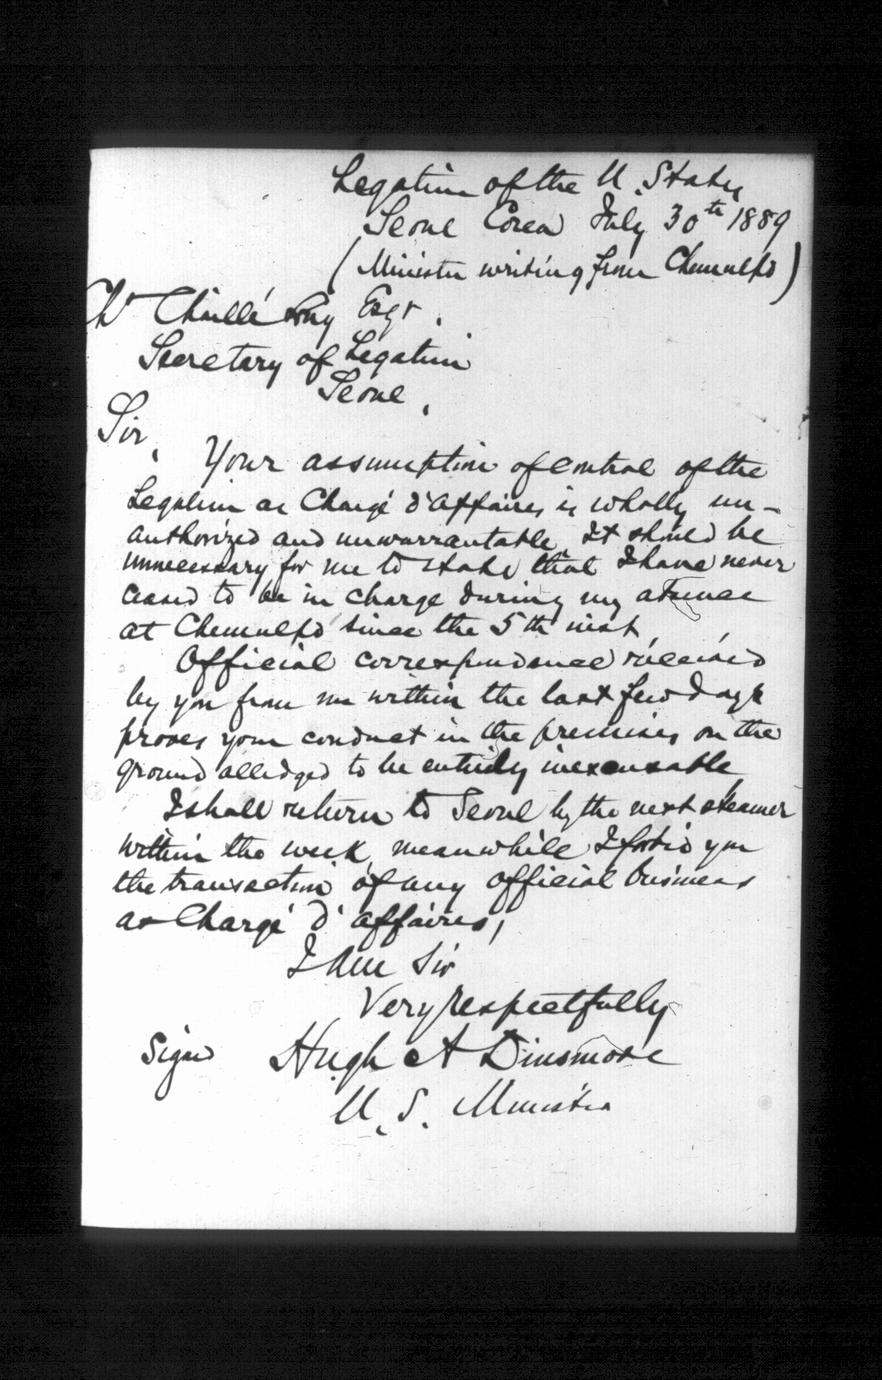 Legation of the U. States
Seoul Corea July 30th 1889
(Minister writing from Chemulpo)
Ch. Chaillé Long Esqr.
Secretary of Legation
Seoul,
Sir,
Your assumption of control of the
Legation as Chargé d'Affaires is wholly un-
authorized and unwarrantable. It should be
unnecessary for me to state that I have never
ceased to be in charge during my absence
at Chemulpo since the 5th inst,
Official correspondence received
by you from me within the last few days
proves your conduct in the premises on the
ground alledged to be entirely inexcusable
I shall return to Seoul by the next steamer
within the week, meanwhile I forbid you
the transaction of any official business
as Chargé d'affaires,
I am Sir
Very respectfully
Sign Hugh A Dinsmore
U. S. Minister